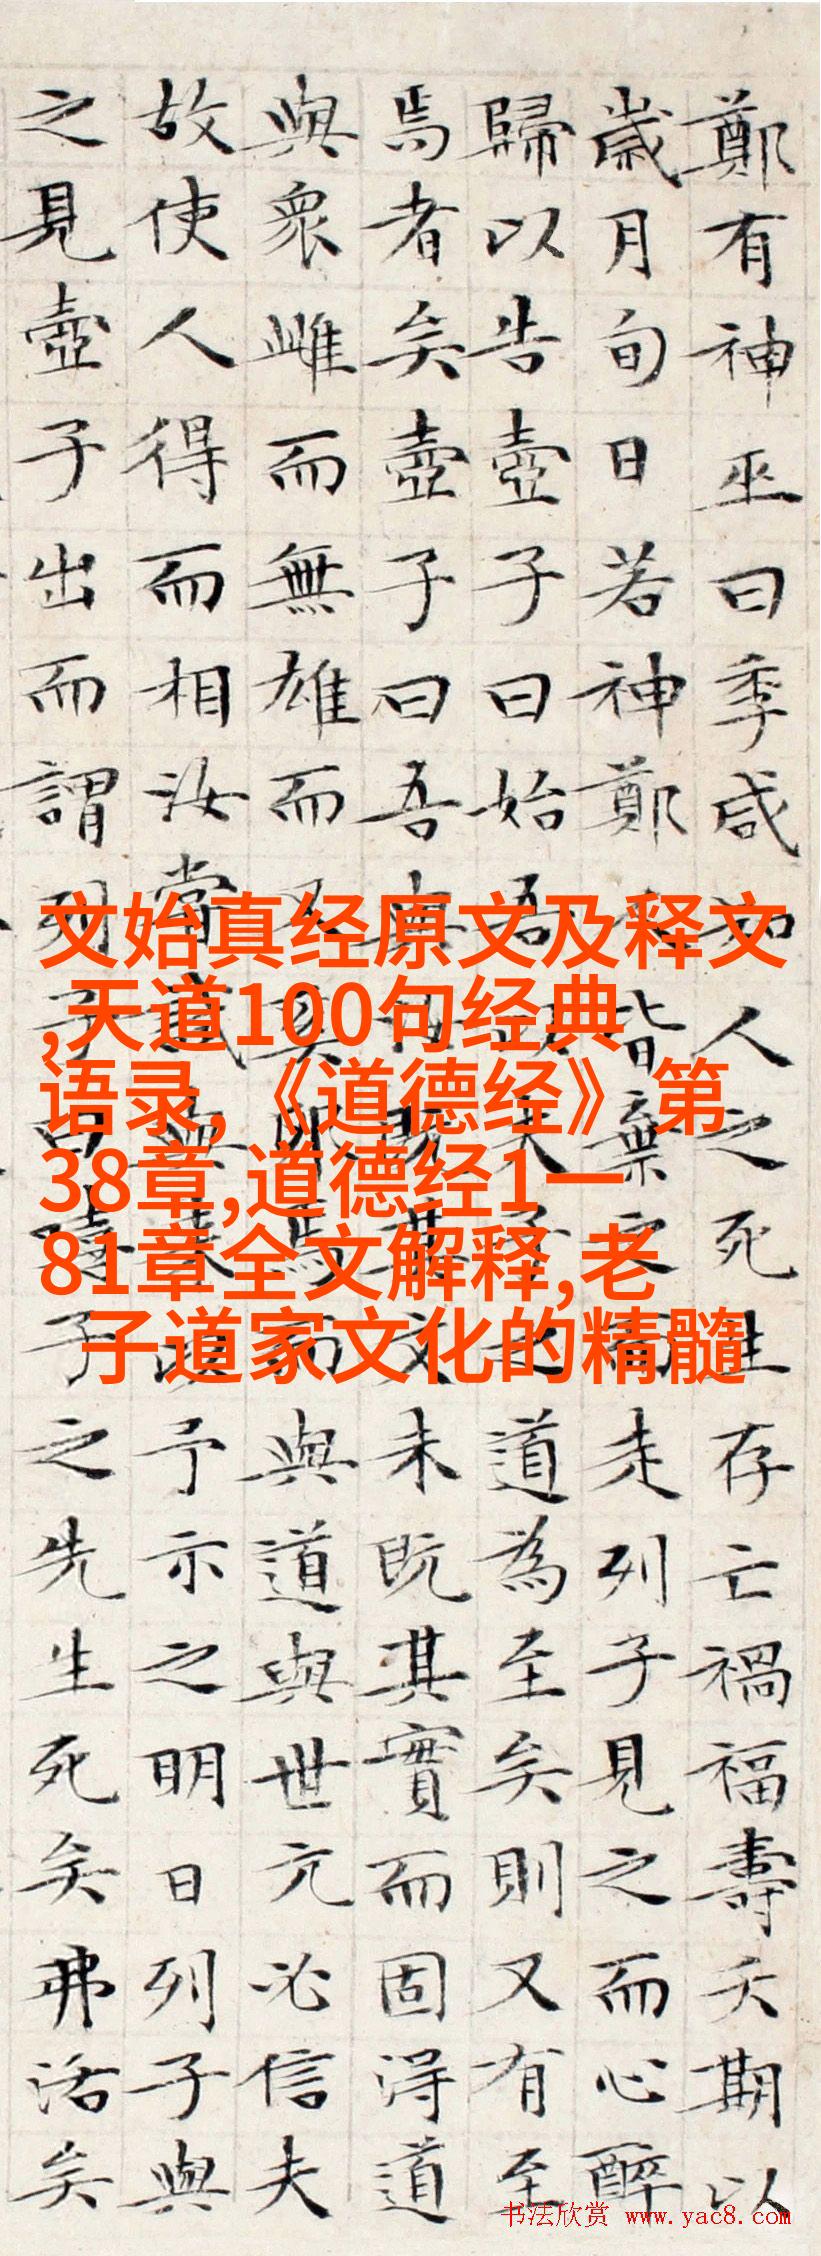 鄭有神巫曰季咸知人之死生存亡禍福壽夭期以
歲月旬日若神鄭人皆棄之而走列子見之而心醉
歸以告壺子曰始吾以夫子之道為至矣則又有至
焉者矣壺子曰吾與汝既其文未既其實而固得道
與眾雌而無雄而又奚卵焉而與道與世亢必信夫
故使人得而相汝嘗試與來以予示之明日列子與
之見壺子出而謂列子曰嘻子之先生死矣弗活矣
文始真经原文及释文
,天道100句经典
语录,《道德经》第
38章,道德经1一
81章全文解释,老
子道家文化的精髓
书法欣赏 www.yac8.com